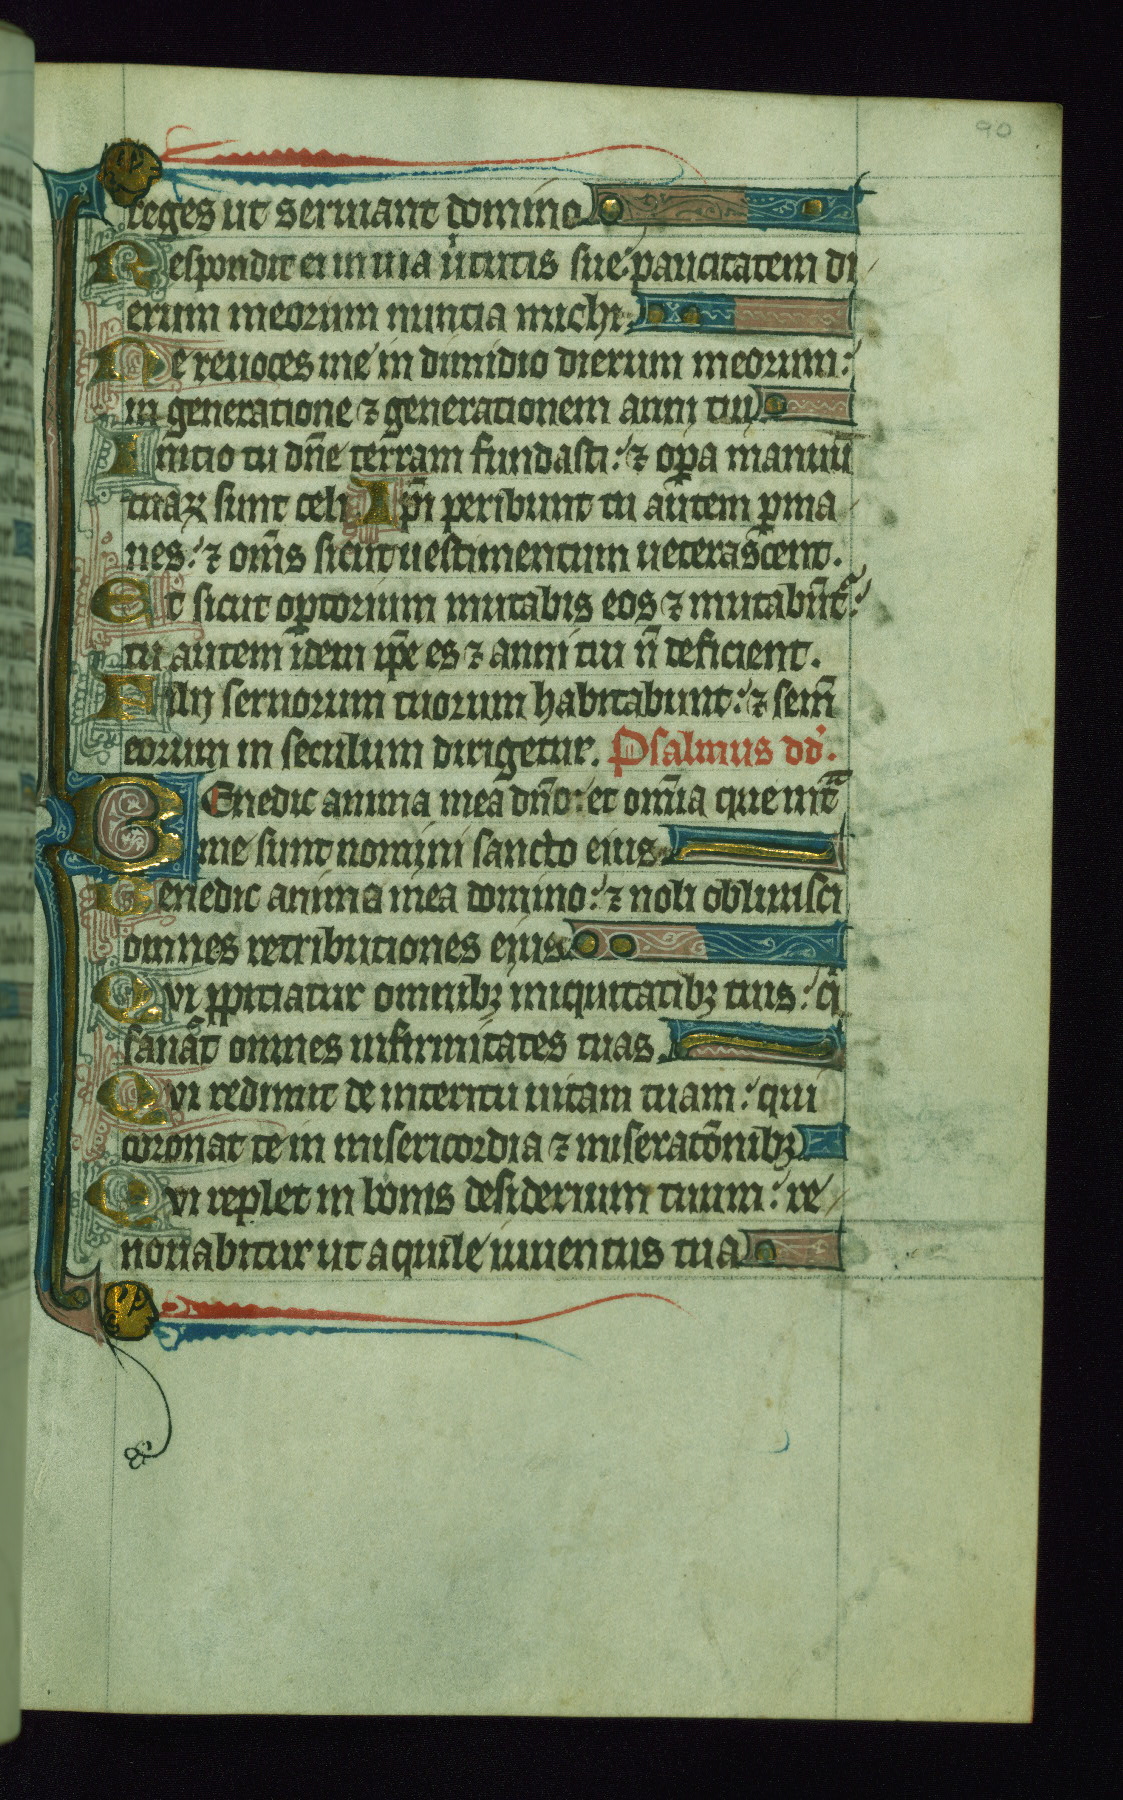 90
reges ut seruiant domino
Respondit ei in uia ūtutis sue: paucitatem di
erum meorum nuncia michi.
Ne reuoces me in dimidio dierum meorum:
in generatione ⁊ generationem anni tui
Initio tu dn̄e terram fundasti: ⁊ oꝑa manuū
tuaꝝ sunt celi Ip̄i peribunt tu aūtem ꝑma
nes: ⁊ om̄s sicut uestimentum ueterascent.
Et sicut optorium mutabis eos ⁊ mutabūt᷑:
tu autem idem ip̄e es ⁊ anni tui n̄ deficient.
Filij seruorum tuorum habitabunt: ⁊ sem̄
eorum in seculum dirigetur. Psalmus dd̓.
BEnedic anima mea dn̄o: et om̄ia que int᷑
me sunt nomini sancto eius
Benedic anima mea domino: ⁊ noli obliuisci
omnes retributiones eius
Qvi ꝓpitiatur omnibꝫ iniquitatibꝫ tuis: qͥ
sanat omnes infirmitates tuas.
Qvi redimit de interitu uitam tuam: qui
coronat te in misericordia ⁊ miseratōnibꝫ
Qvi replet in bonis desiderium tuum: re
nouabitur ut aquile iuuentus tua